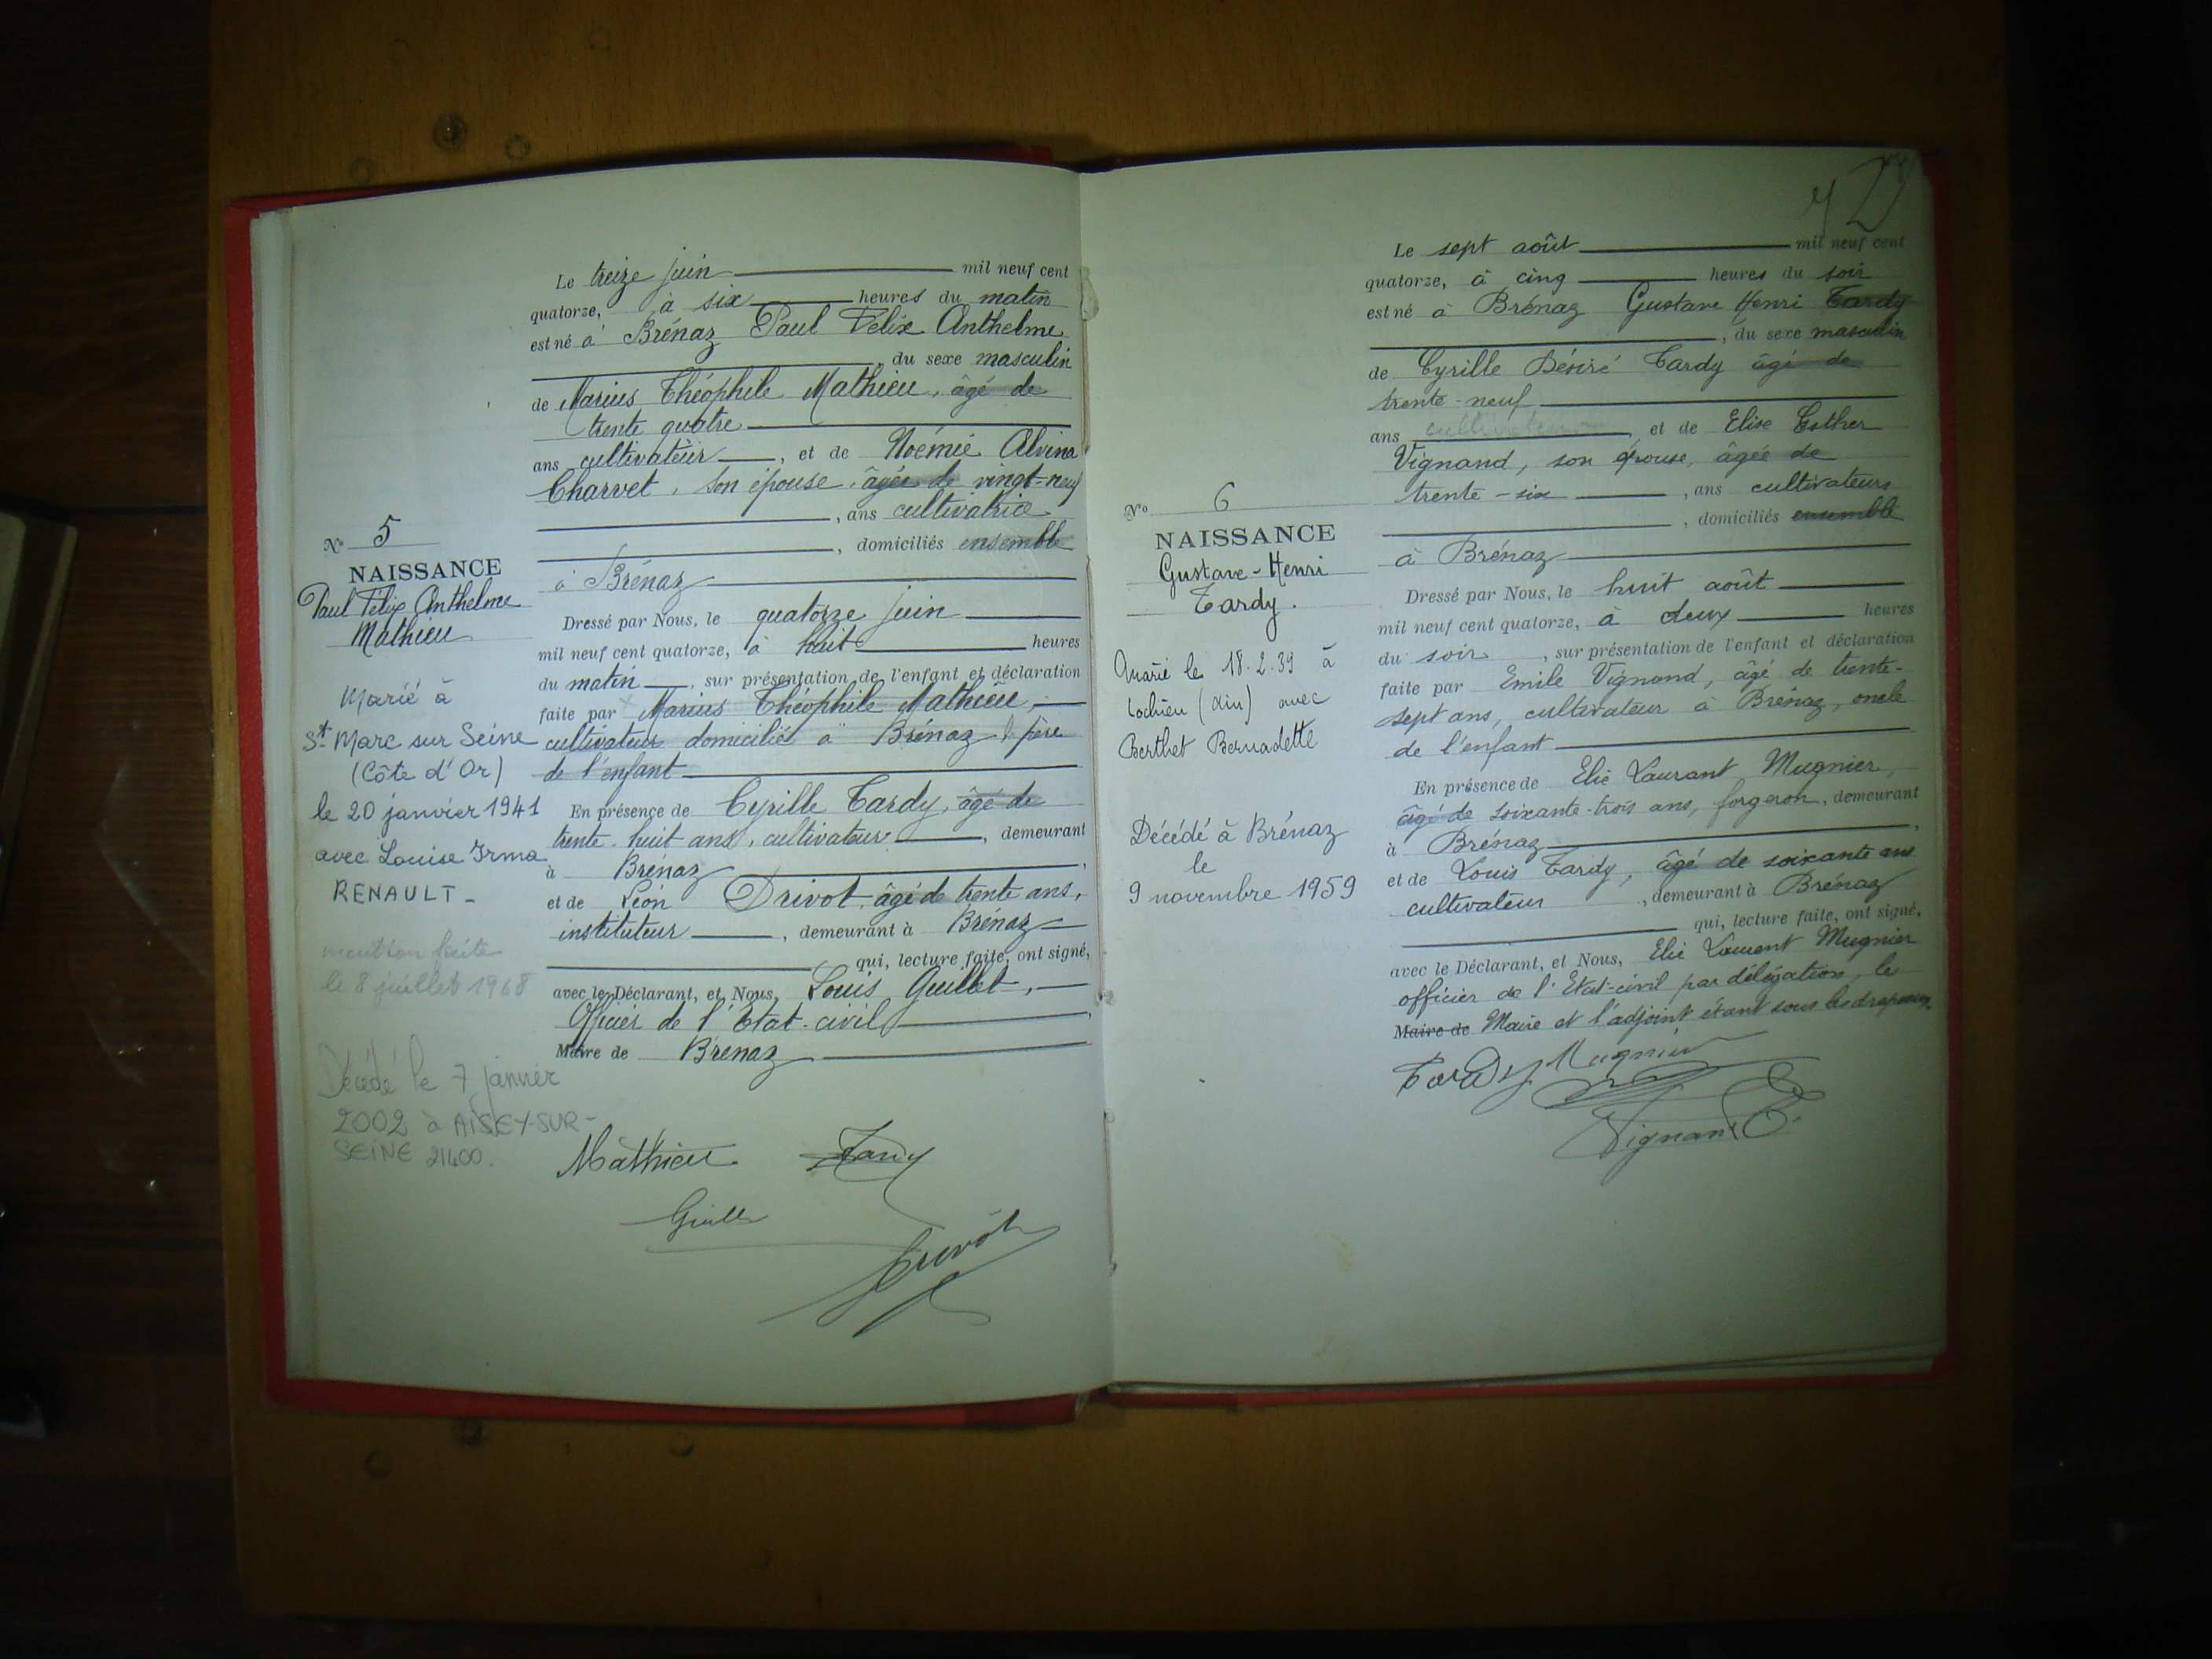 Le treize juin mil neuf cent
quatorze, à six heures du matin
est né à Brénaz Paul Félix Anthelme
, du sexe masculin
de Marius Théophile Mathieu, âgé de
trente quatre
ans cultivateur, et de Noémie Alvina
Charvet, son épouse, âgée de vingt-neuf
, ans cultivatrice
, domiciliés ensemble
à Brénaz
Dressé par Nous, le quatorze juin
mil neuf cent quatorze, à huit heures
du matin, sur présentation de l'enfant et déclaration
faite par Marius Théophile Mathieu,
cultivateur domicilié à Brénaz le père
de l'enfant
En présence de Cyrille Tardy, âgé de
trente huit ans, cultivateur, demeurant
à Brénaz,
et de Léon Drivot, âgé de trente ans,
instituteur, demeurant à Brénaz
qui, lecture faite, ont signé,
avec le Déclarant, et Nous, Louis Guillet,
Officier de l'Etat-civil,
Maire de Brénaz
Mathieu Tardy
Guillet
Drivot
No 5
NAISSANCE
Paul Félix Anthelme
Mathieu
Marié à
St Marc sur Seine
(Côte d'Or)
le 20 janvier 1941
avec Louise Irma
RENAULT -
mention faite
le 8 juillet 1968
Décédé le 7 janvier
2002 à AISEY-SUR-
SEINE 21400.
Le sept août mil neuf cent
quatorze, à cinq heures du soir
est né à Brénaz Gustave Henri Tardy
, du sexe masculin
de Cyrille Désiré Tardy âgé de
trente-neuf
ans cultivateur, et de Elise Esther
Vignand, son épouse, âgée de
trente-six, ans cultivateurs
, domiciliés ensemble
à Brénaz
Dressé par Nous, le huit août
mil neuf cent quatorze, à deux heures
du soir, sur présentation de l'enfant et déclaration
faite par Emile Vignand, âgé de trente-
sept ans, cultivateur à Brénaz, oncle
de l'enfant
En présence de Elie Laurant Mugnier,
âgé de soixante-trois ans, forgeron, demeurant
à Brénaz,
et de Louis Tardy, âgé de soixante ans
cultivateur, demeurant à Brénaz
qui, lecture faite, ont signé,
avec le Déclarant, et Nous, Elie Laurent Mugnier
officier de l'Etat-civil par délégation, le
Maire de Maire et l'adjoint étant sous les drapeaux
Tardy Mugnier
Vignand E.
No 6
NAISSANCE
Gustave-Henri
Tardy.
Marié le 18.2.39 à
Lochieu (Ain) avec
Berthet Bernadette
Décédé à Brénaz
le
9 novembre 1959